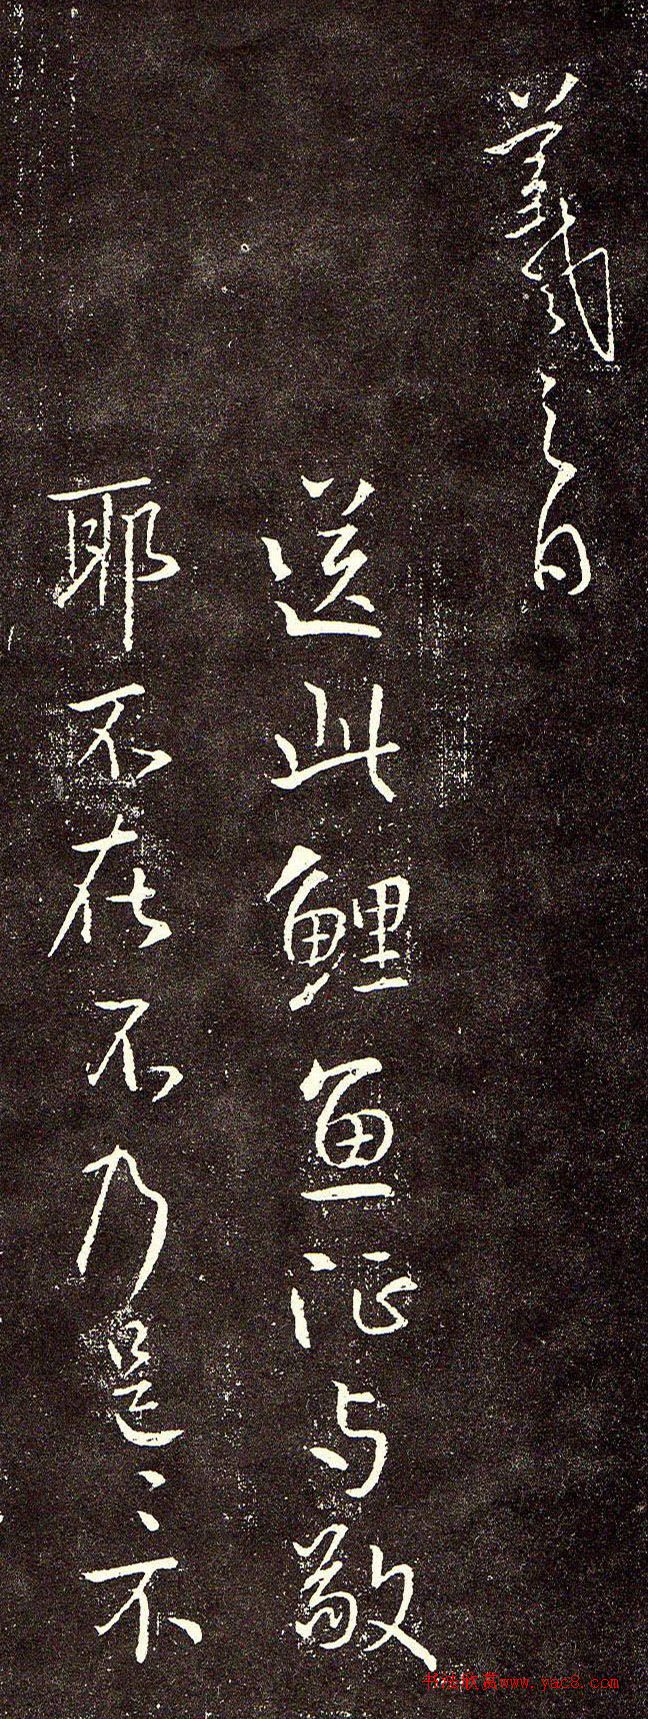 羲之白
送此鯉魚征与敬
耶不在不乃是〻不
书法欣赏www.yac8.com